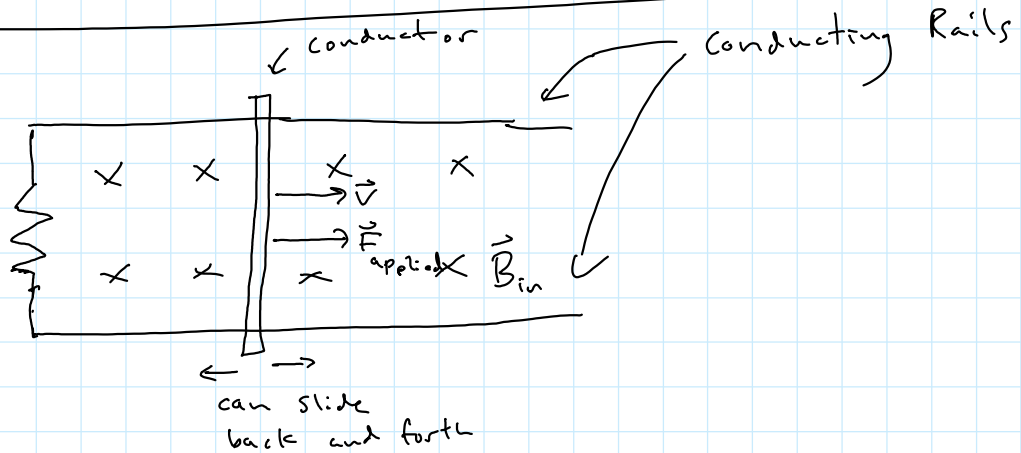 conductor
Conducting Rails
x x x x
v⃗
F⃗ applied
x x x x B⃗ in
can slide
back and forth